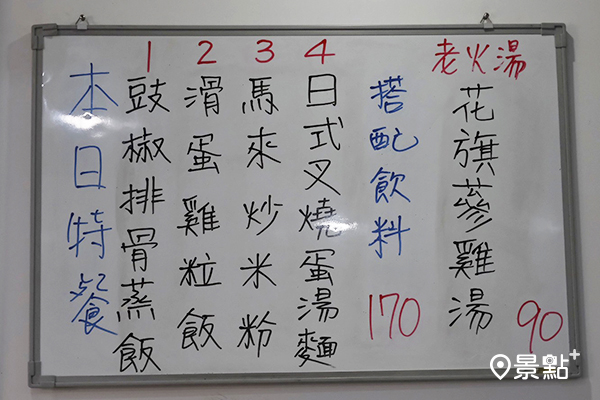 本日特餐
1 豉椒排骨蒸飯
2 滑蛋雞粒飯
3 馬來炒米粉
4 日式叉燒蛋湯麵
搭配飲料 170
老火湯
花旗蔘雞湯 90
景點+